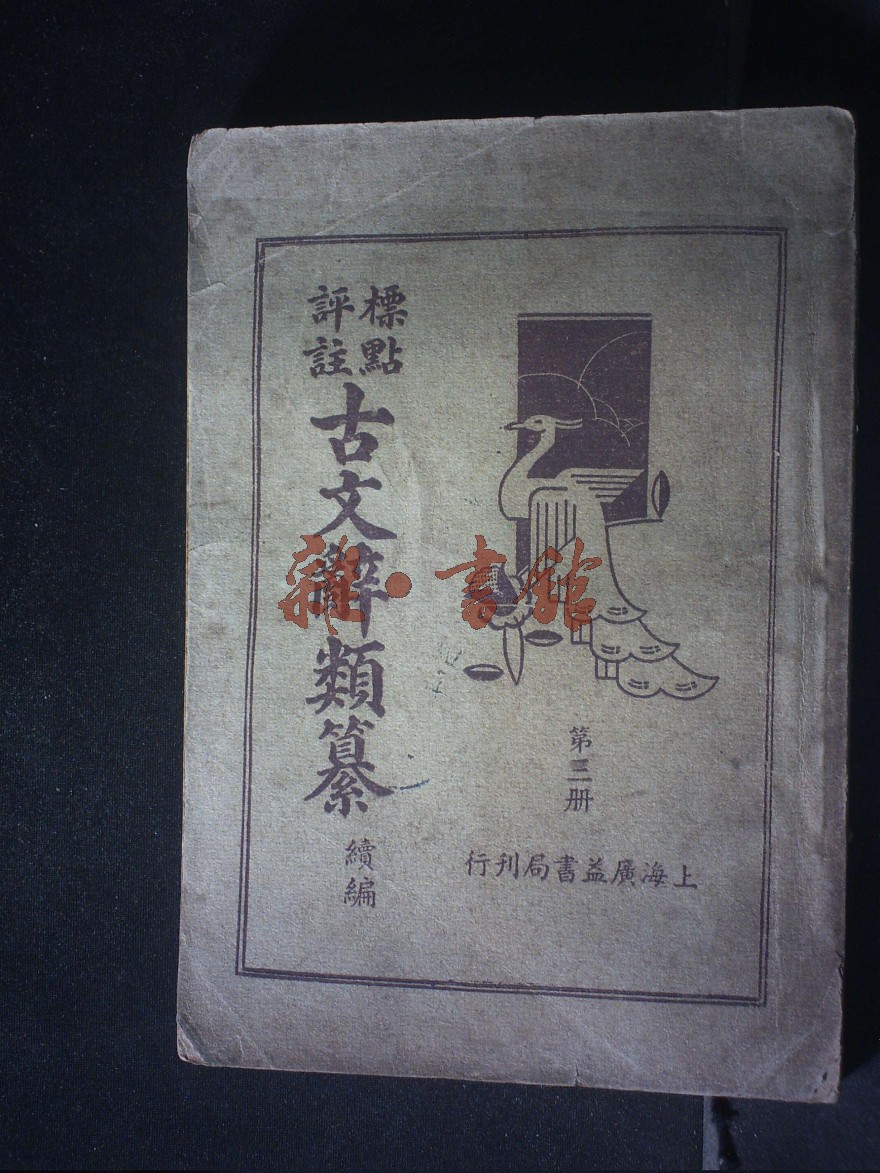 標點
評註
古文辭類纂
續編
第三册
上海廣益書局刊行
雜·書館